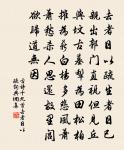 去者日以疏生者日已
親出郭門直視但見丘
與墳古墓犁為田松柏
摧為薪白楊多悲風蕭
蕭愁殺人思還故里閭
欲歸道無因
古詩十九首去者日以